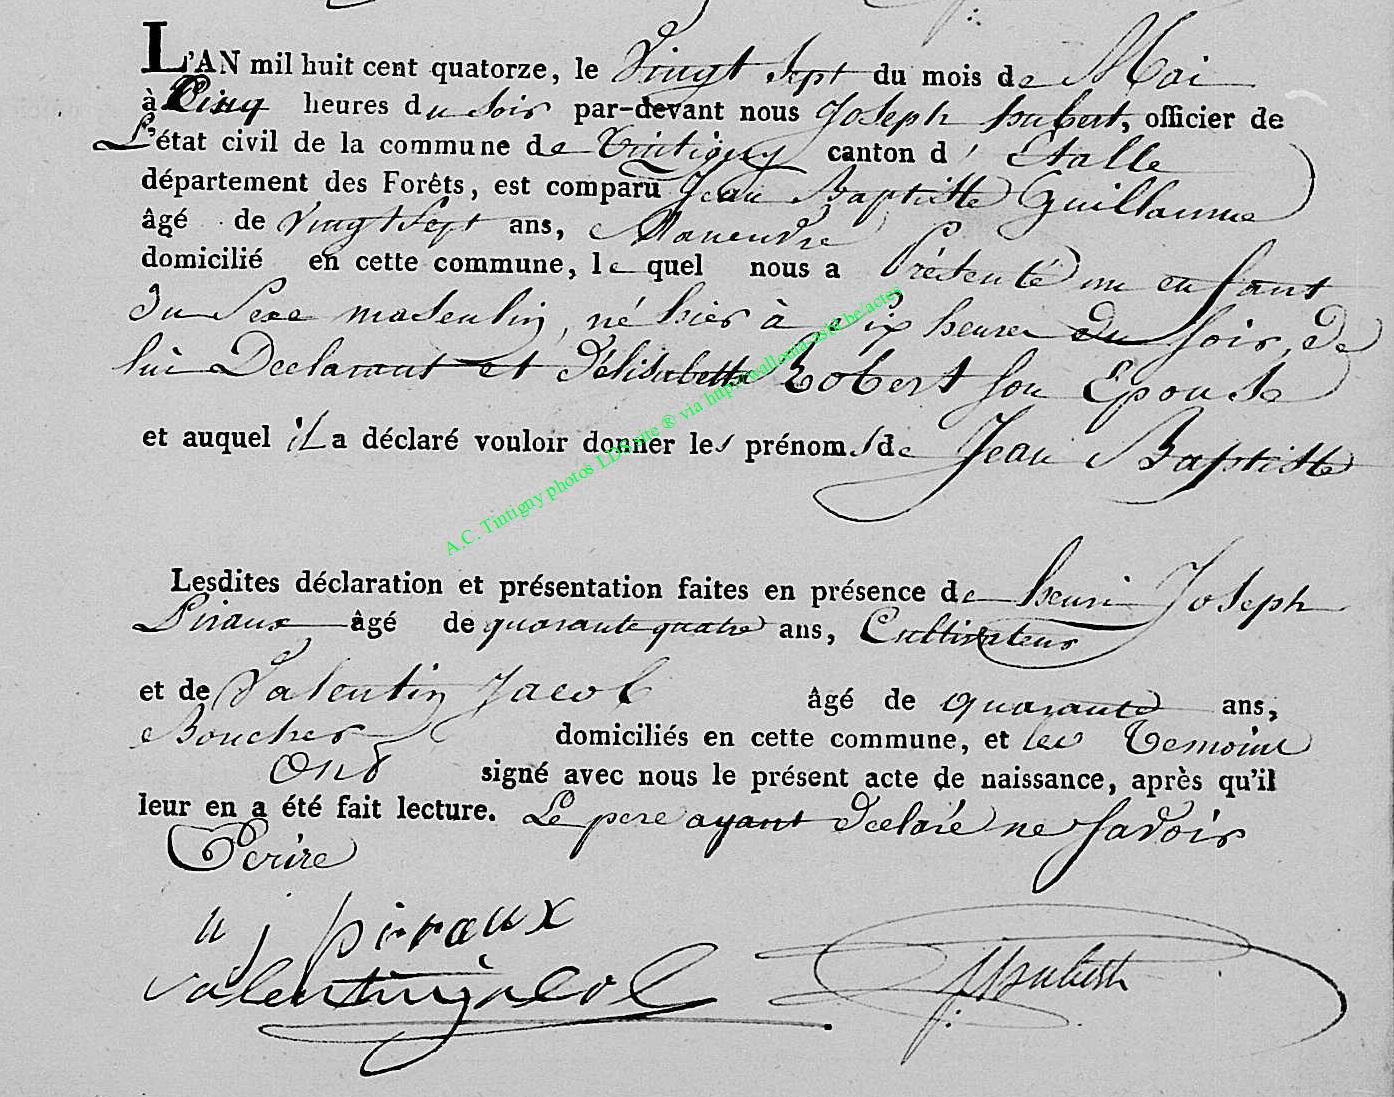 L'AN mil huit cent quatorze, le Vingt Sept du mois de Mai
à Cinq heures du Soir par-devant nous Joseph hubert, officier de
L'état civil de la commune de Tintigny canton d' Etalle
département des Forêts, est comparu Jean Baptiste Guillaume
âgé de Vingt Sept ans, Manœuvre
domicilié en cette commune, le quel nous a Présenté un enfant
du Sexe masculin, né hier à Six heures du soir, de
lui Declarant et d'élisabeth Robert son Epouse
et auquel il a déclaré vouloir donner les prénoms de Jean Baptiste
A.C. Tintigny photos LDS site ® via http://wallonia-asbl.be/actes
Lesdites déclaration et présentation faites en présence de henri Joseph
Piraux âgé de quarante quatre ans, Cultivateur
et de Valentin Jacob âgé de quarante ans,
Boucher domiciliés en cette commune, et les Temoins
Ont signé avec nous le présent acte de naissance, après qu'il
leur en a été fait lecture. Le pere ayant déclaré ne savoir
Ecrire
hj piraux
valentin jacob JHubert